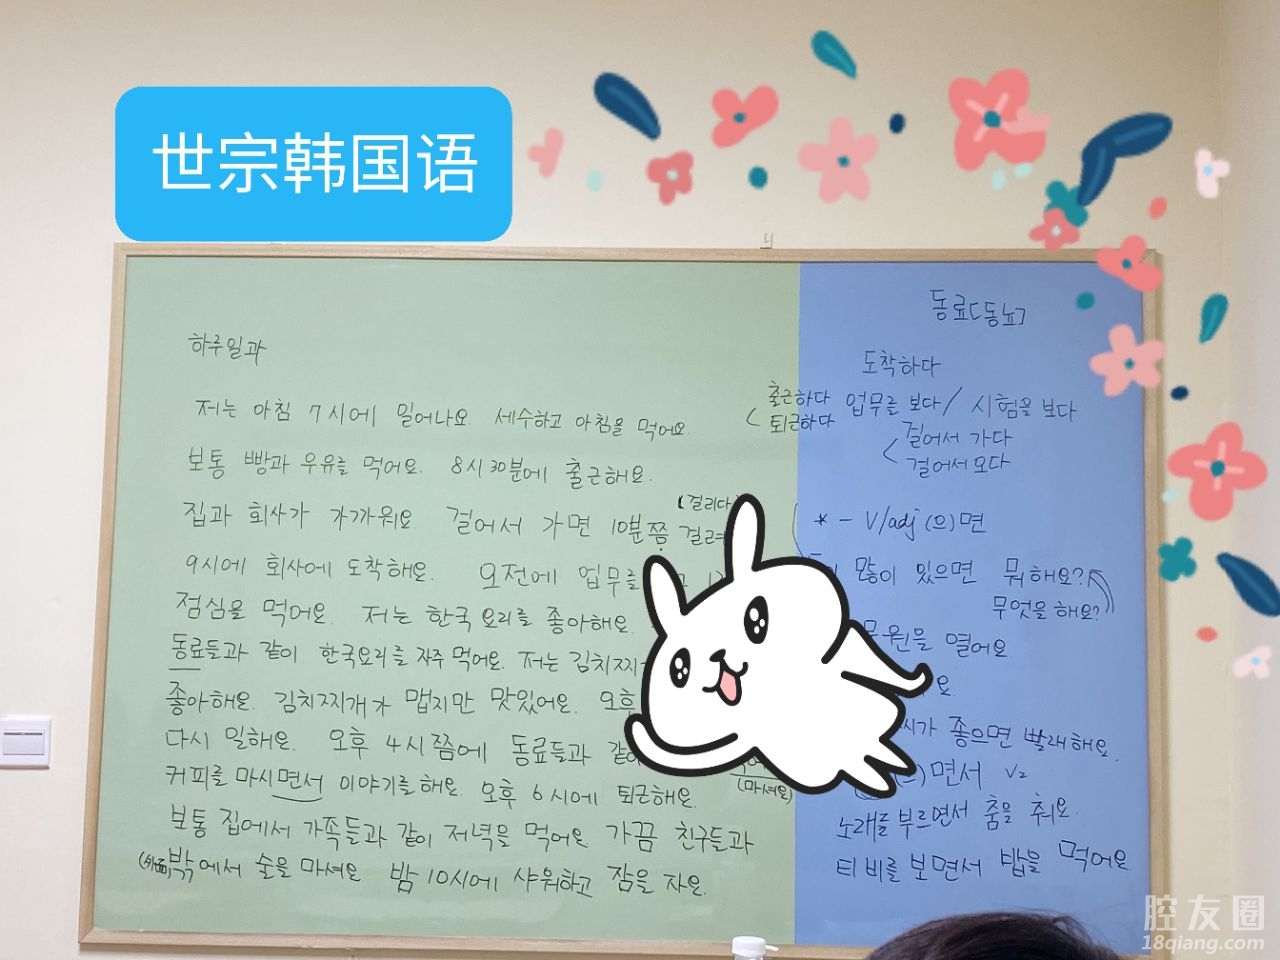 世宗韩国语
하루일과
저는 아침 7시에 일어나요. 세수하고 아침을 먹어요.
보통 빵과 우유를 먹어요. 8시30분에 출근해요.
(걸리다)
집과 회사가 가까워요. 걸어서 가면 10분쯤 걸려
9시에 회사에 도착해요. 오전에 업무를
점심을 먹어요. 저는 한국요리를 좋아해요.
동료들과 같이 한국요리를 자주 먹어요. 저는 김치찌
좋아해요. 김치찌개가 맵지만 맛있어요. 오후
다시 일해요. 오후 4시쯤에 동료들과 같이
커피를 마시면서 이야기를 해요. 오후 6시에 퇴근해요.
(마셔요)
보통 집에서 가족들과 같이 저녁을 먹어요. 가끔 친구들과
밖에서 술을 마셔요. 밤 10시에 샤워하고 잠을 자요.
동료[동뇨]
도착하다
출근하다
퇴근하다
업무를 보다/ 시험을 보다
걸어서 가다
걸어서 오다
* - V/adj (으)면
많이 있으면 뭐해요?
무엇을 해요?
열어요
좋으면 빨래해요.
면서 V2
노래를 부르면서 춤을 춰요.
티비를 보면서 밥을 먹어요
腔友圈
18qiang.com